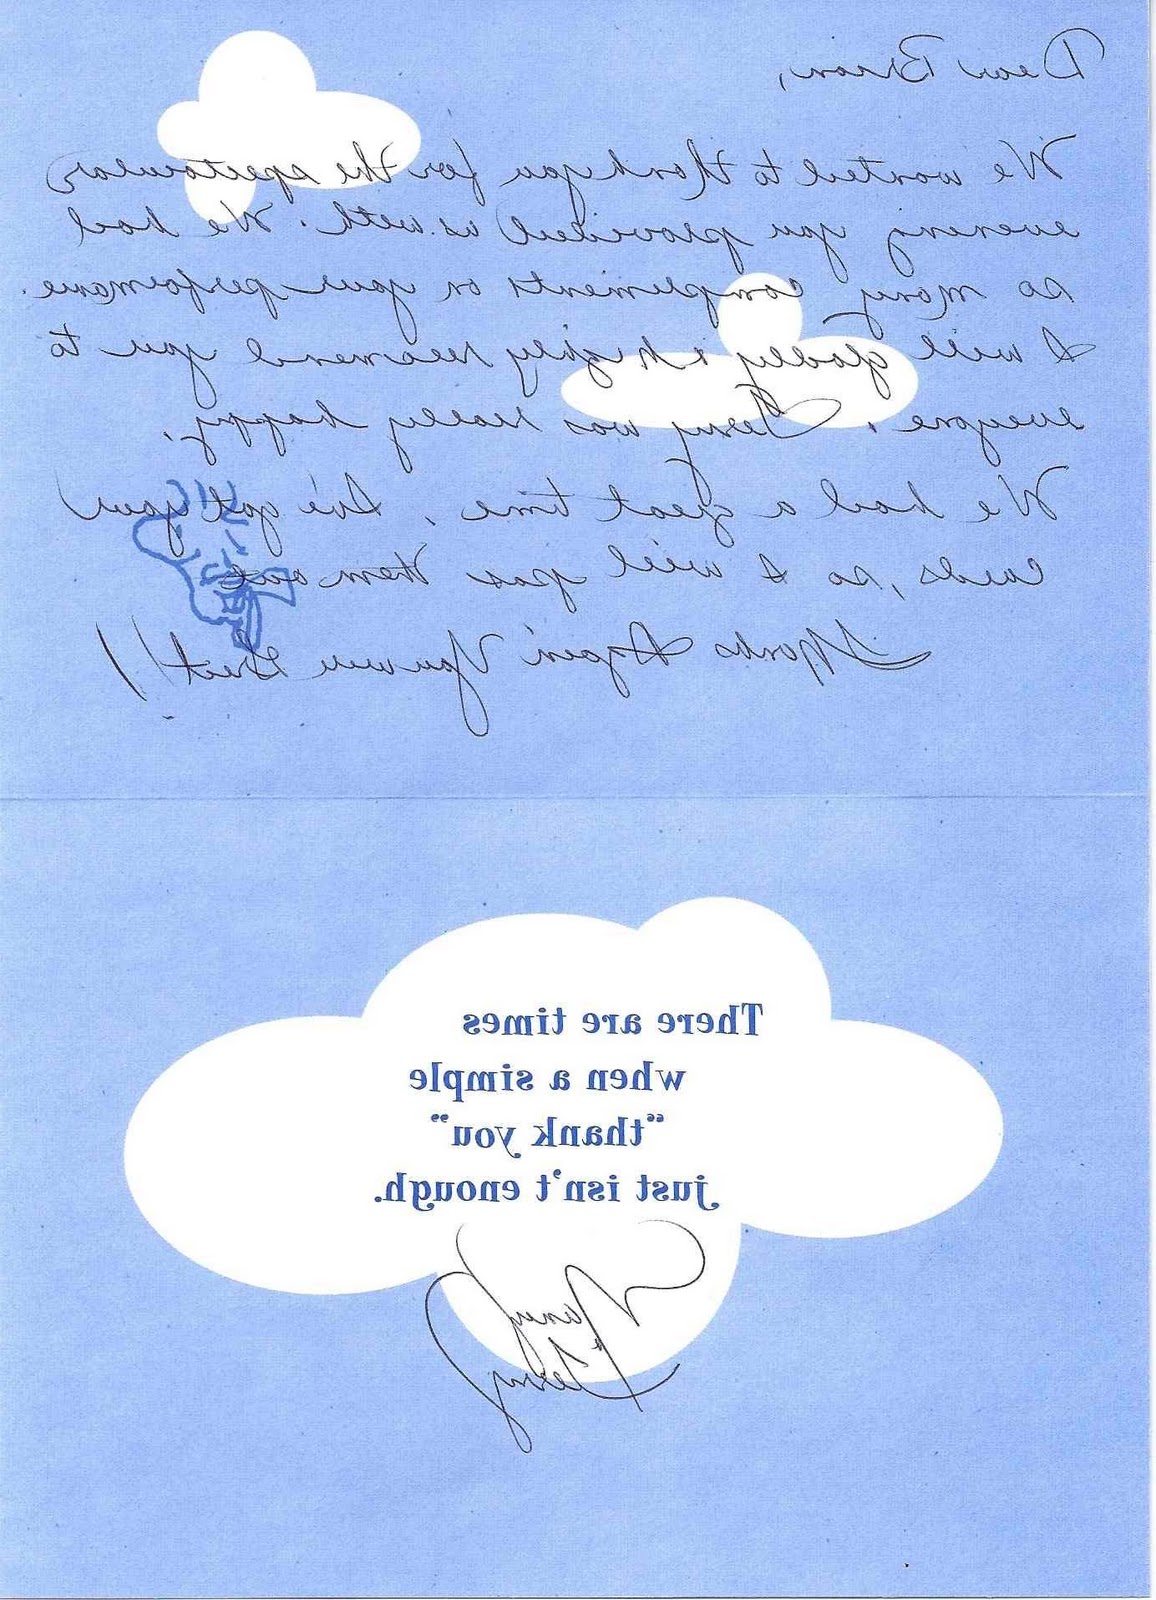 Dear Brian,
We wanted to thank you for the spectacular
evening you provided us with. We had
so many compliments on your performance.
I will gladly & highly recomend you to
everyone. Terry was really happy.
We had a great time. I've got your
cards, so I will pass them out
Thanks Again You were Great!!!
There are times
when a simple
“thank you”
just isn't enough.
Nancy &
Terry